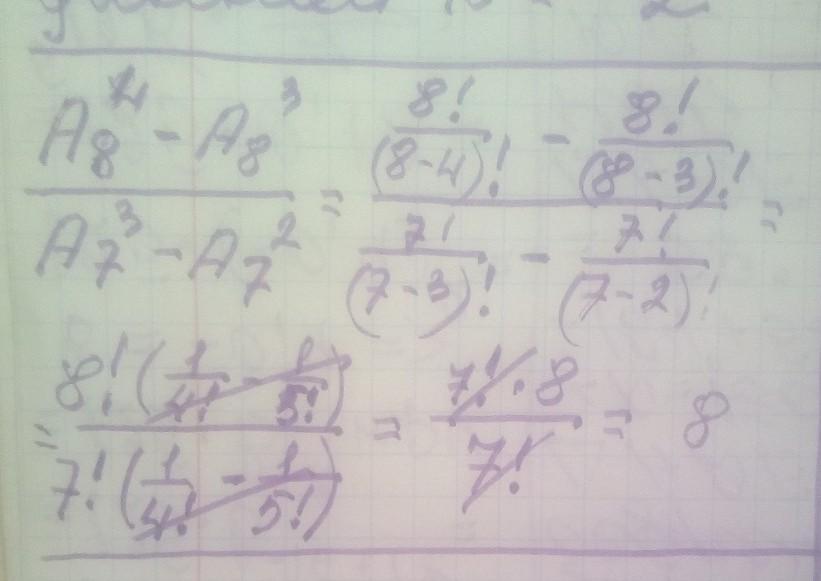 A₈⁴ - A₈³ / A₇³ - A₇² = 8!/(8-4)! - 8!/(8-3)! / 7!/(7-3)! - 7!/(7-2)! =
= 8!(1/4! - 1/5!) / 7!(1/4! - 1/5!) = 7!·8 / 7! = 8